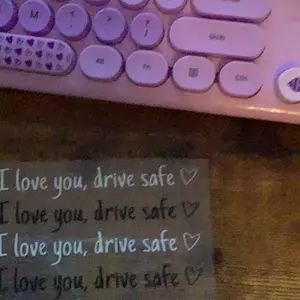 M
Shift
Alt
Ctrl
I love you, drive safe ♡
I love you, drive safe ♡
I love you, drive safe ♡
I love you, drive safe ♡